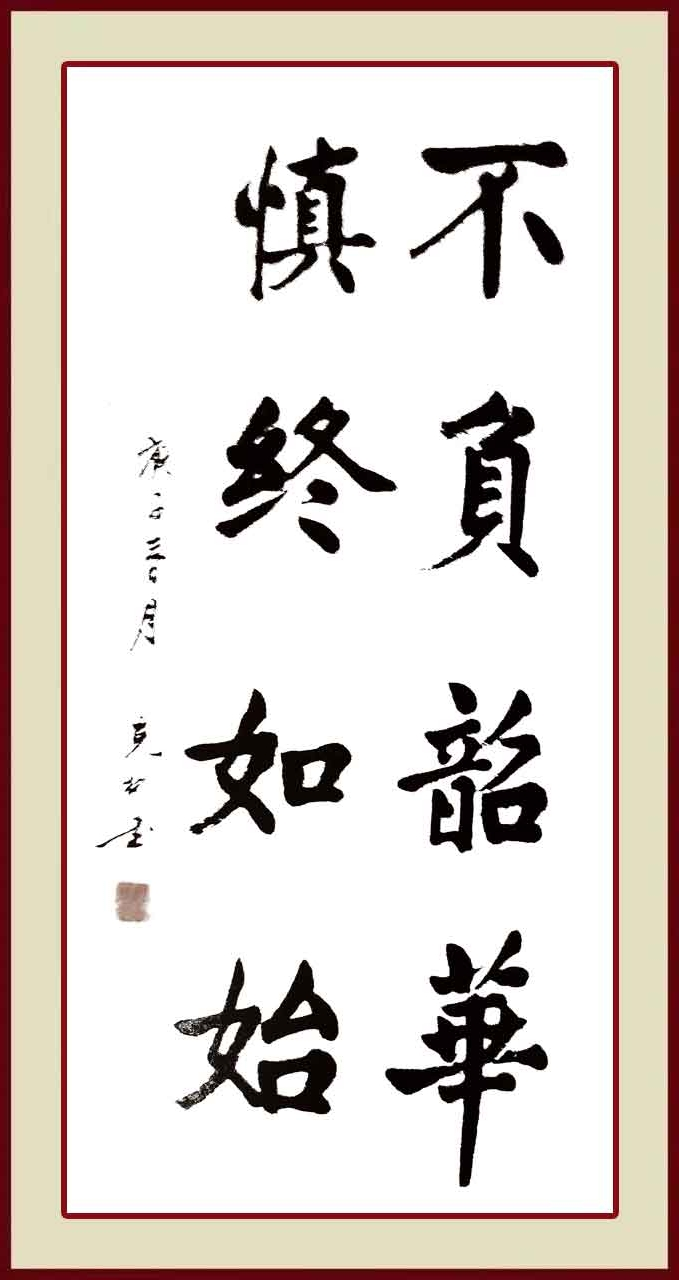 不負韶華
慎終如始
庚子三月